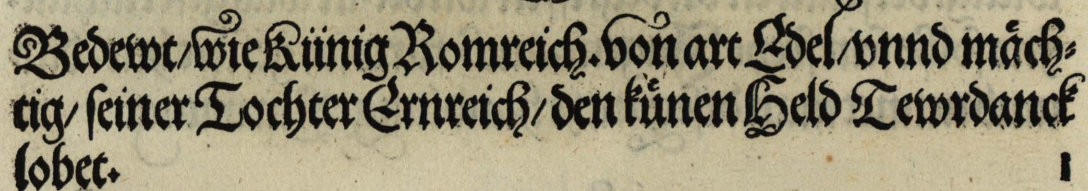 Bedewt/wie Künig Romreich. von art Edel/vnnd mäch⸗
tig/ seiner Tochter Ernreich/den künen Held Tewrdanck
lobet. 1